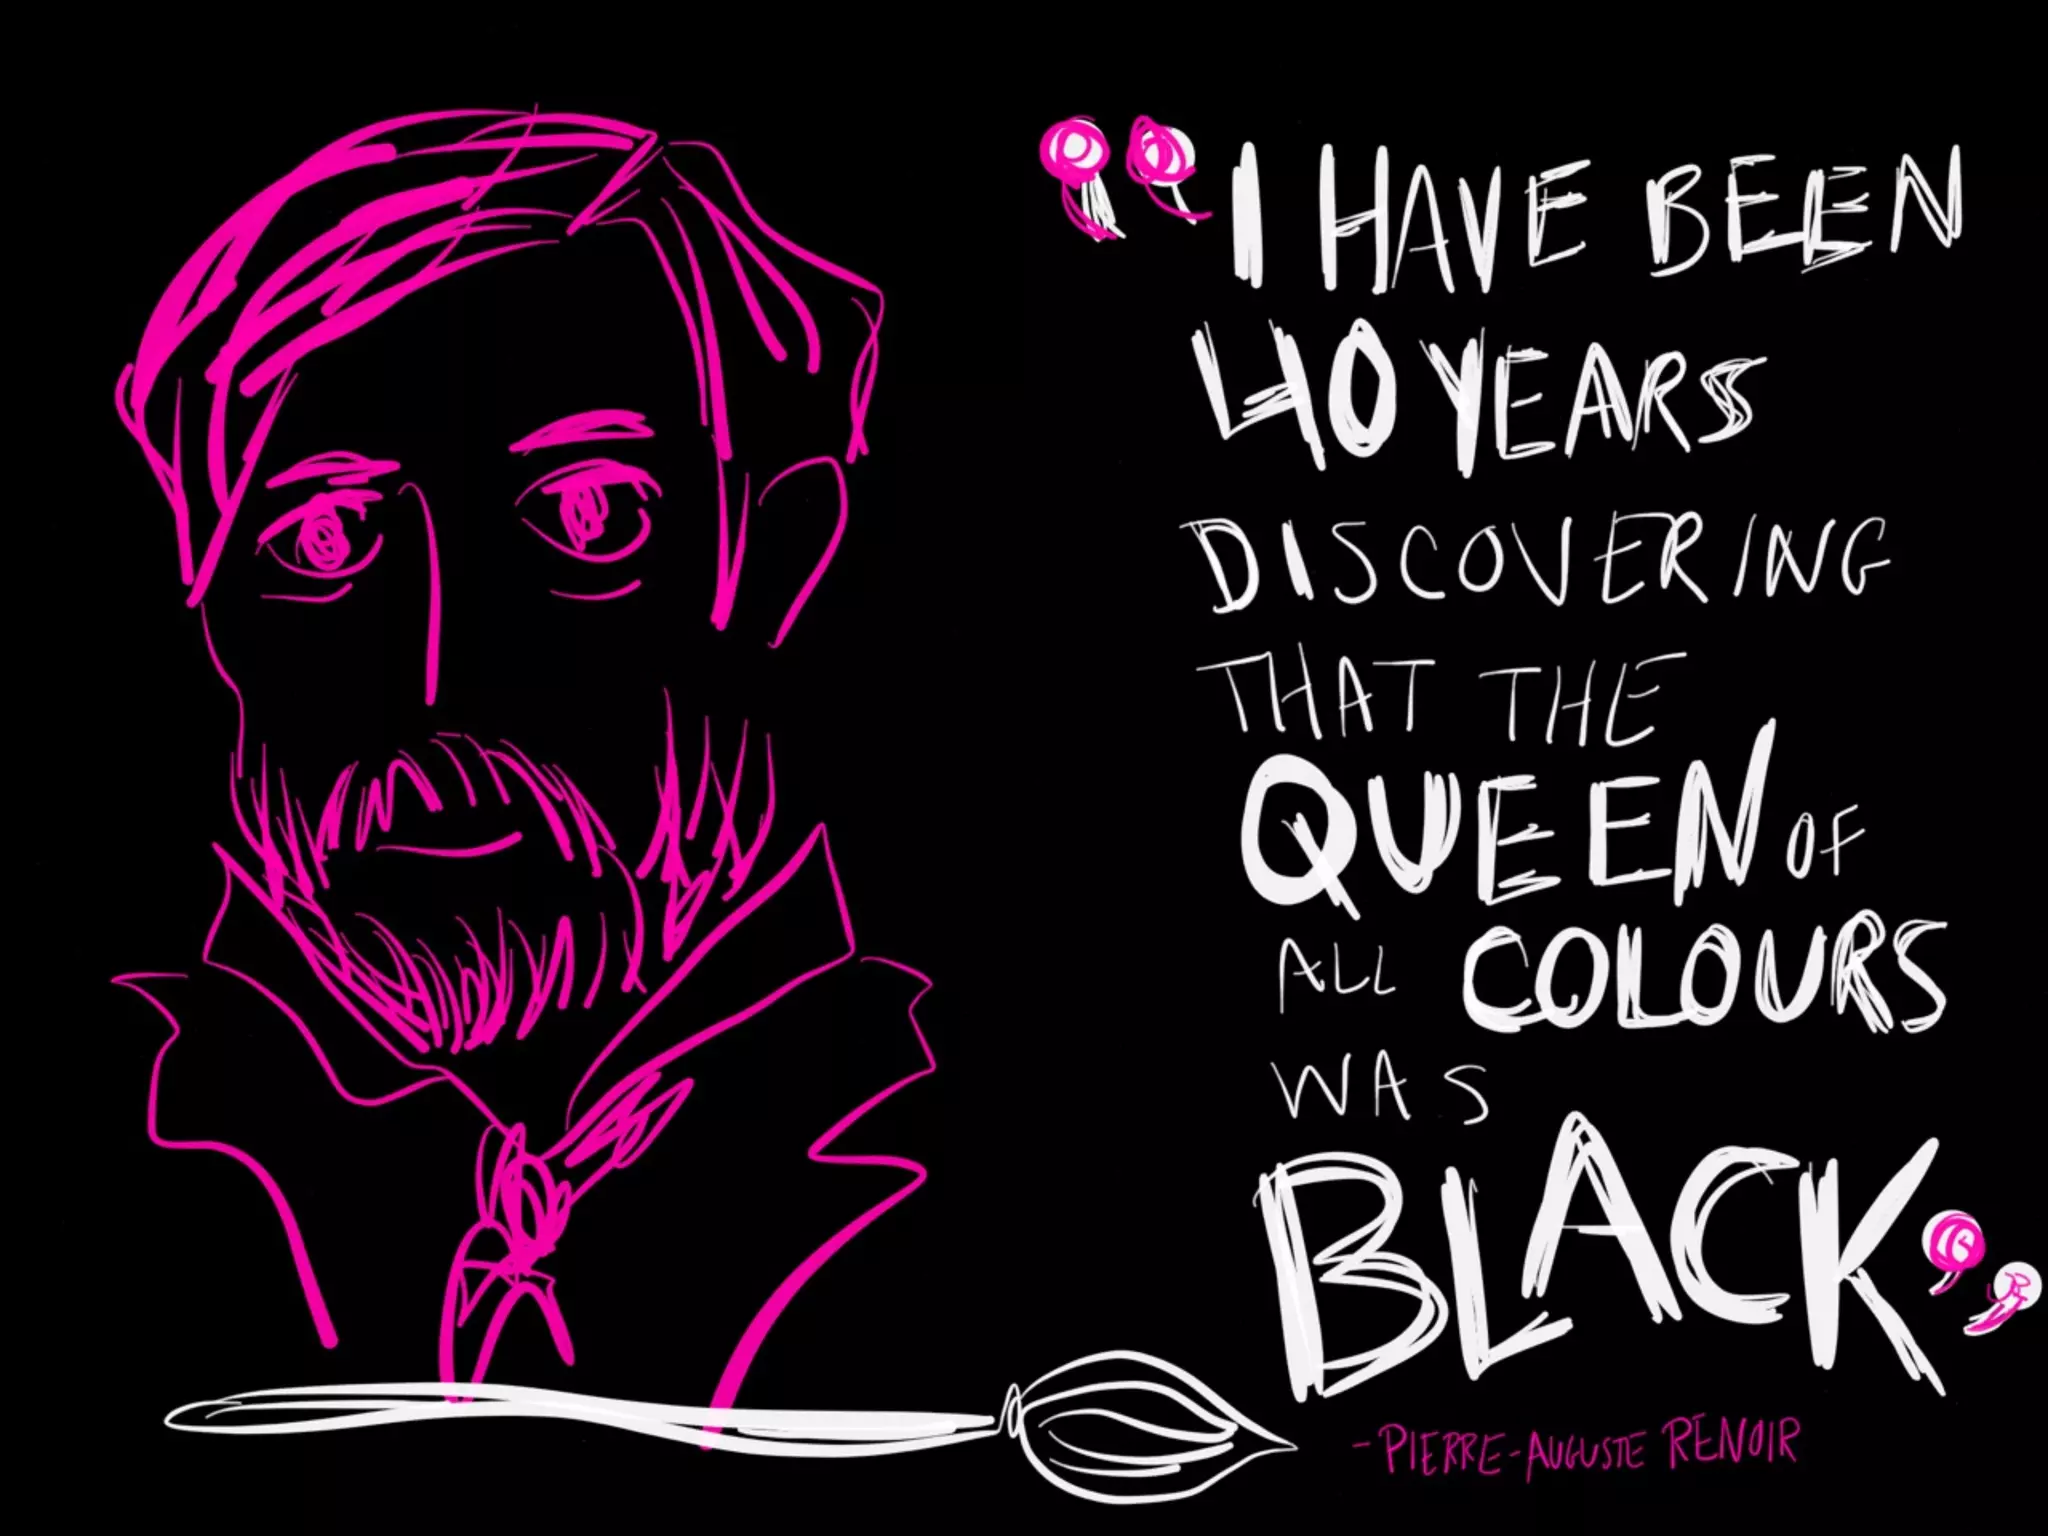 “I HAVE BEEN
40 YEARS
DISCOVERING
THAT THE
QUEEN OF
ALL COLOURS
WAS
BLACK”
-PIERRE-AUGUSTE RENOIR